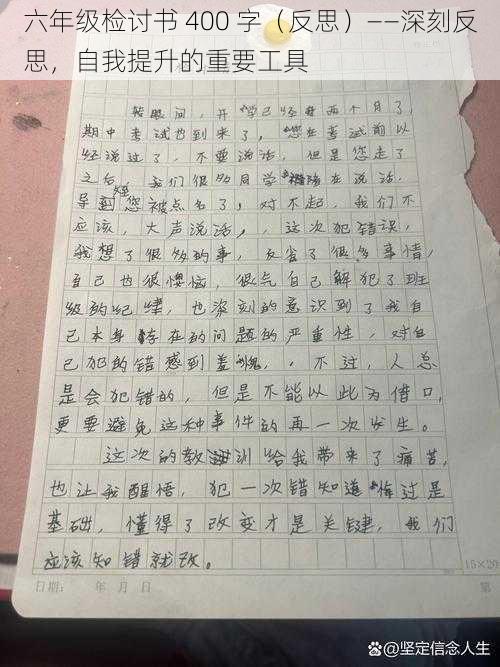 六年级检讨书 400 字（反思）——深刻反
思，自我提升的重要工具
转眼间，开学已经有两个月了，
期中考试也到来了，您在考试前以
经说过了，不要说话，但是您走了
之后，我们很多同学在说话，
导致您被点名了，对不起，我们不
应该，大声说话，，这次犯错误，
我想了很多的事，反省了很多事情，
自己也很懊恼，很气自己解犯了班
级的纪律，也深刻的意识到了我自
己本身存在的问题的严重性，对自
己犯的错感到羞愧，，不过，人总
是会犯错的，但是不能以此为借口，
更要避免这种事件的再一次发生。
这次的教训给我带来了痛苦，
也让我醒悟，犯一次错知道悔过是
基础，懂得了改变才是关键，我们
应该知错就改。
15×20
日期： 年 月 日 第
@坚定信念人生